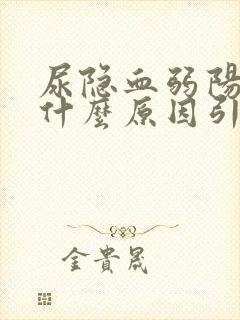 尿隐血弱陽
什麼原因引
金貴晟